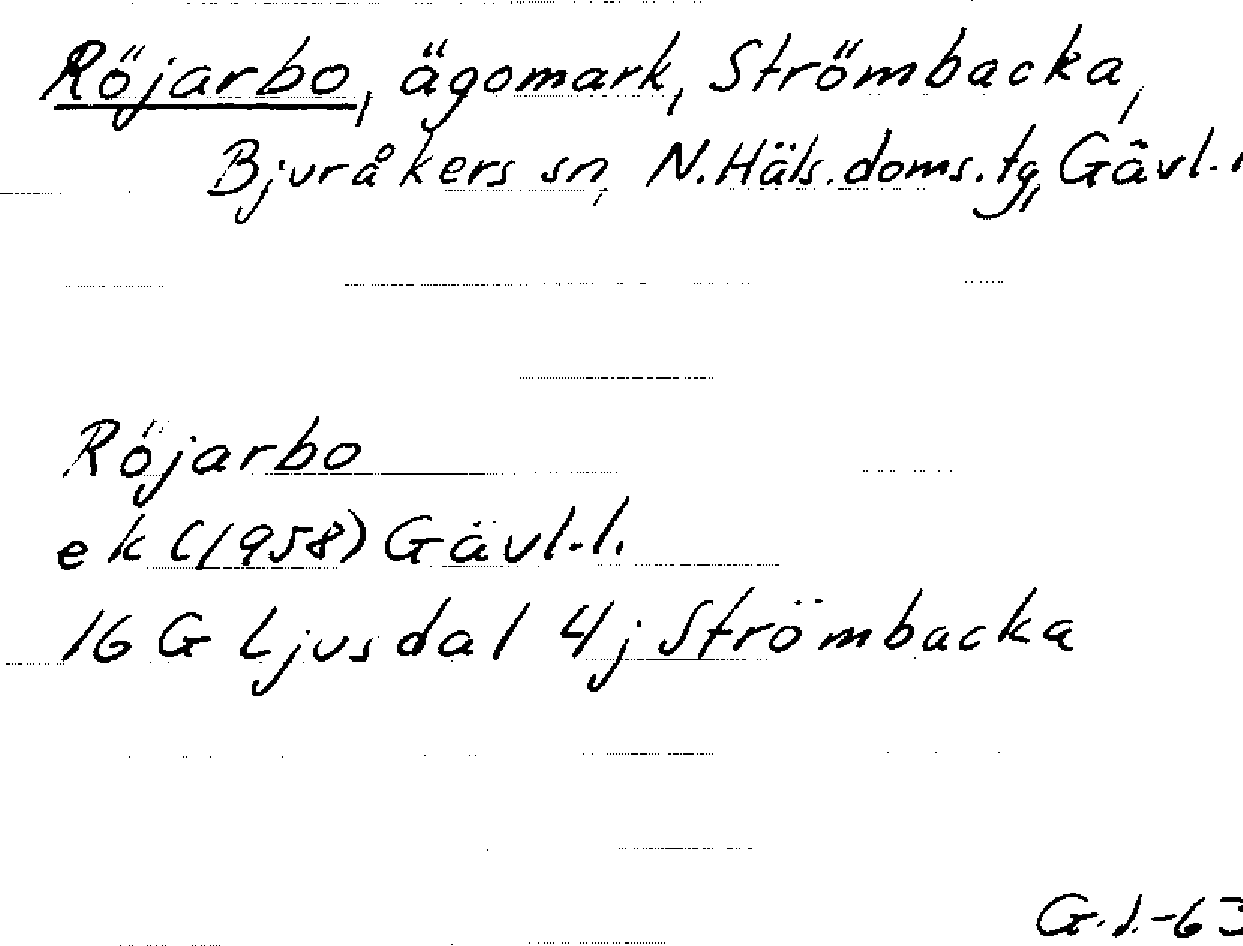 Röjarbo, ägomark, Strömbacka,
Bjuråkers sn, N.Häls.doms.tg, Gävl.l
Röjarbo
ek (1958) Gävl.l.
16 G Ljusdal 4j Strömbacka
G.J.-63